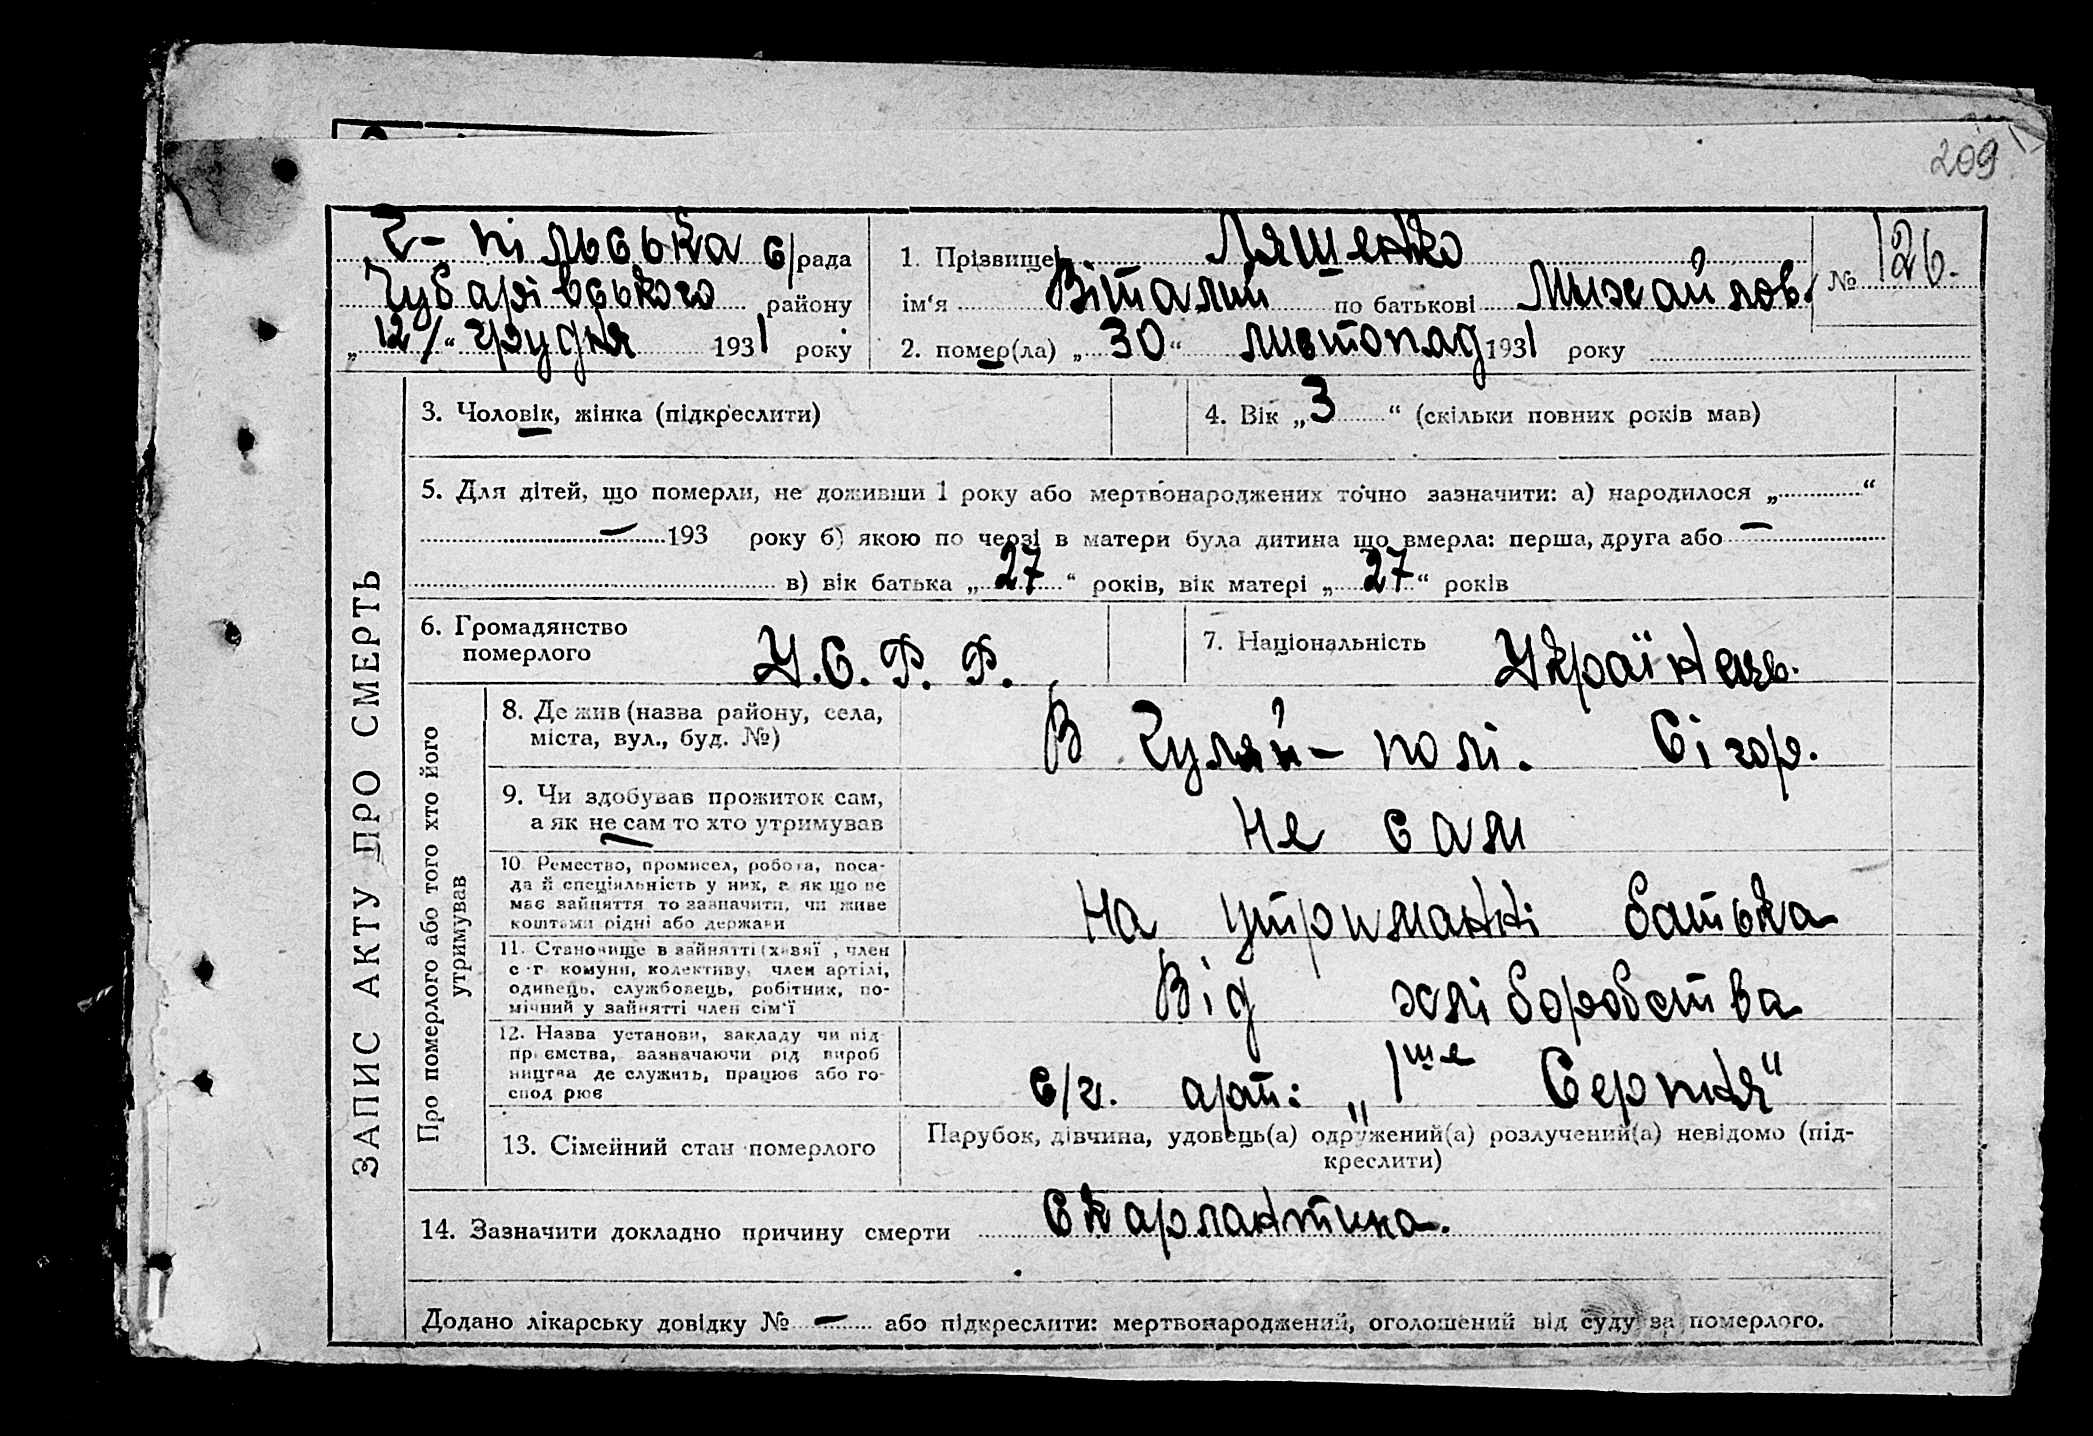 209
Г-пільська с/рада
Чубарівського району
„12/“ грудня 1931 року
1. Прізвище Ляшенко
ім‘я Віталий по батькові Михайлов.
№ 126.
2. помер(ла) „30“ листопад 1931 року
ЗАПИС АКТУ ПРО СМЕРТЬ
3. Чоловік, жінка (підкреслити)
4. Вік „3“ (скільки повних років мав)
5. Для дітей, що померли, не доживши 1 року або мертвонароджених точно зазначити: а) народилося „ “
— 193 року б) якою по черзі в матери була дитина що вмерла: перша, друга або —
в) вік батька „27“ років, вік матері „27“ років
6. Громадянство
померлого
У.С.Р.Р.
7. Національність Українець.
Про померлого або того хто його
утримував
8. Де жив (назва району, села,
міста, вул., буд. №)
В Гуляй-полі.
9. Чи здобував прожиток сам,
а як не сам то хто утримував
не сам
10 Ремество, промисел, робота, поса-
да й спеціяльність у них, а як що не
має зайняття то зазначити, чи живе
коштами рідні або держави
На утриманні батька
11. Становище в зайнятті (хазяї, член
с-г комуни, колективу, член артілі,
одинець, службовець, робітник, по-
мічний у зайнятті член сім'ї
Від хліборобства
12. Назва установи, закладу чи під-
приємства, зазначаючи рід вироб
ництва де служить, працює або го-
спод рює
с/г. арт: „1ше Серпня“
13. Сімейний стан померлого
Парубок, дівчина, удовець(а) одружений(а) розлучений(а) невідомо (під-
креслити)
14. Зазначити докладно причину смерти Скарлантина.
Додано лікарську довідку № — або підкреслити: мертвонароджений, оголошений від суду за померлого.